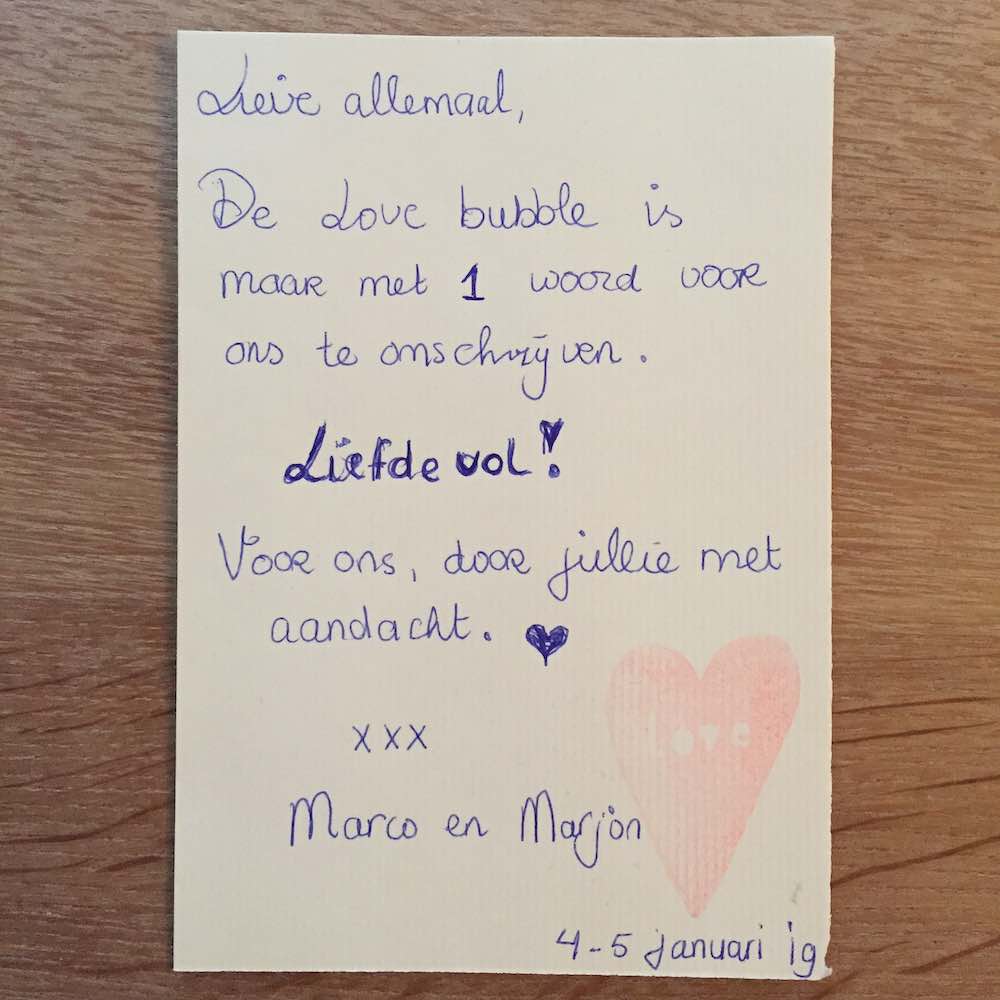 Lieve allemaal,
De Love bubble is
maar met 1 woord voor
ons te omschrijven.
Liefdevol!
Voor ons, door jullie met
aandacht. ♥
xxx
Marco en Marjon
love
4-5 januari 19